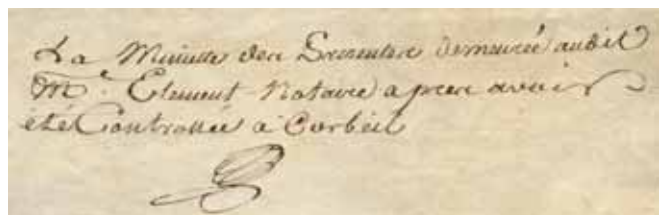 La Minutte des presentes demeurée audit
Me. Clement Notaire apres avoir
eté Controllee a Corbeil